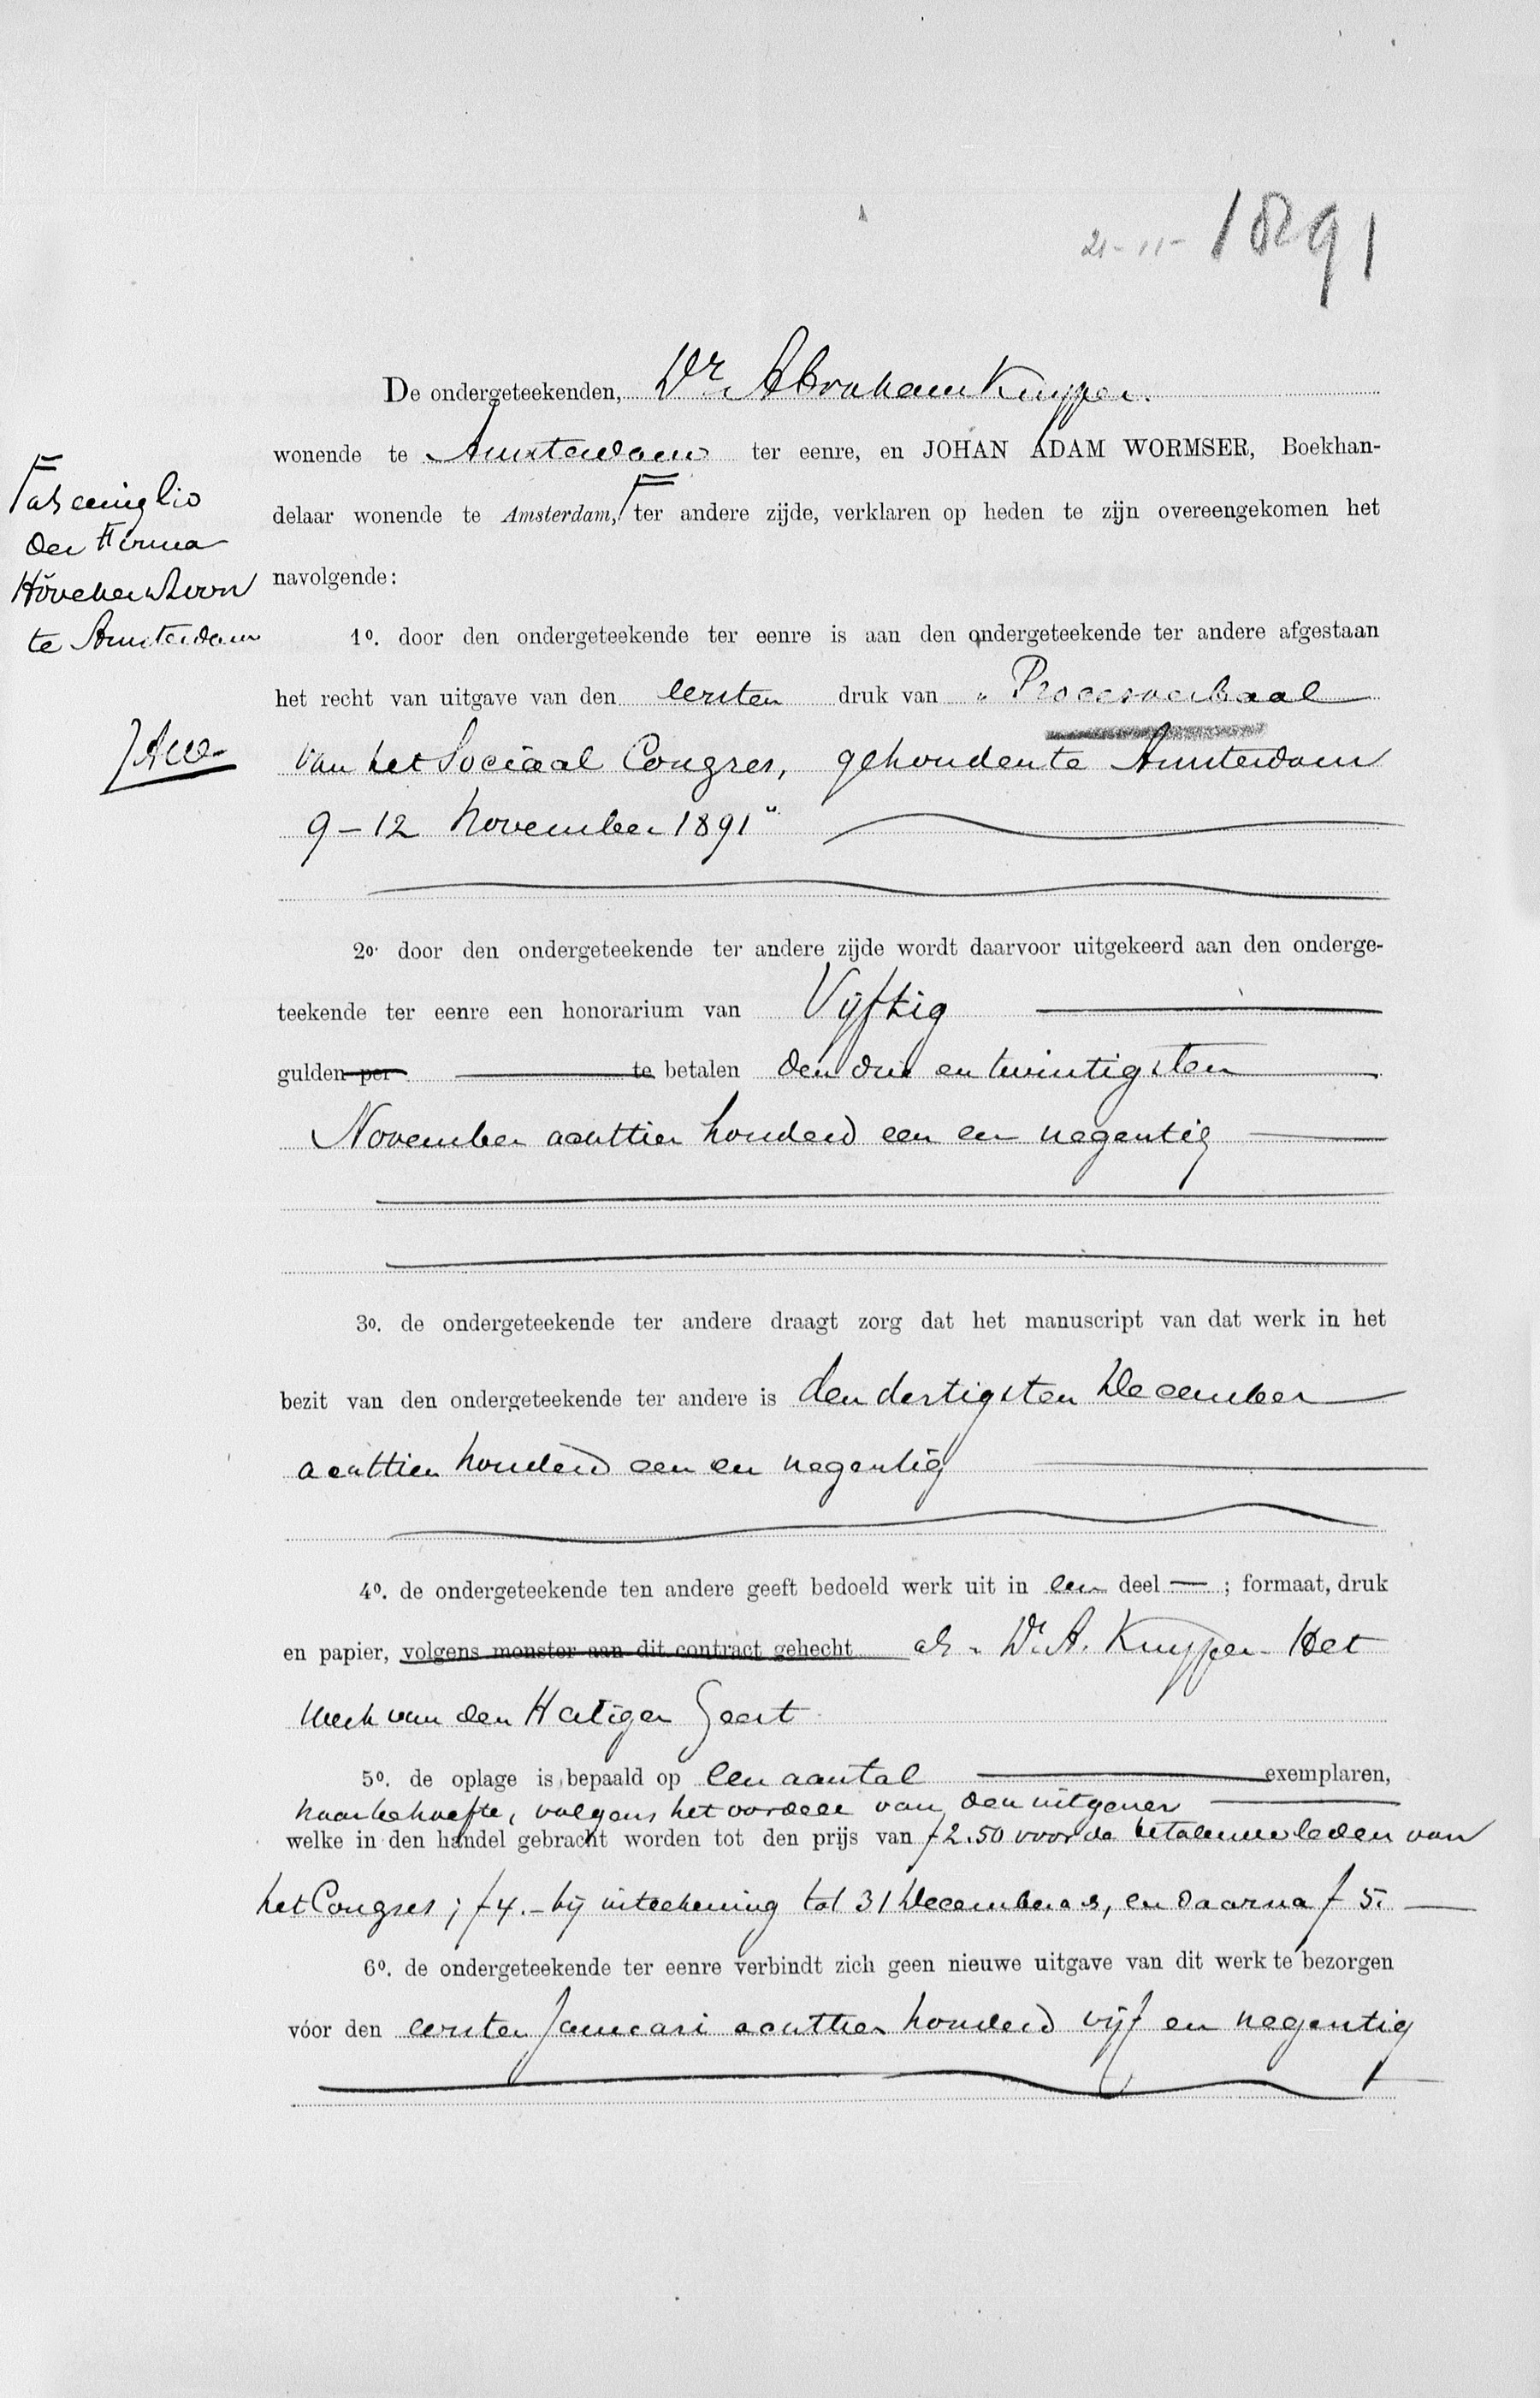 21-11-1891
De ondergeteekenden, Dr Abraham Kuyper.
wonende te Amsterdam ter eenre, en JOHAN ADAM WORMSER, Boekhan-
delaar wonende te Amsterdam, Γ ter andere zijde, verklaren op heden te zijn overeengekomen het
navolgende:
Γ als eenig lid
der Firma
Höveker & Zoon
te Amsterdam
JAW
1o. door den ondergeteekende ter eenre is aan den ondergeteekende ter andere afgestaan
het recht van uitgave van den eersten druk van „Procesverbaal
van het Sociaal Congres, gehouden te Amsterdam
9–12 November 1891"
2o. door den ondergeteekende ter andere zijde wordt daarvoor uitgekeerd aan den onderge-
teekende ter eenre een honorarium van Vijftig
gulden per te betalen den drie en twintigsten
November achttien honderd een en negentig
3o. de ondergeteekende ter andere draagt zorg dat het manuscript van dat werk in het
bezit van den ondergeteekende ter andere is den dertigsten December
achttien honderd een en negentig
4o. de ondergeteekende ten andere geeft bedoeld werk uit in een deel — ; formaat, druk
en papier, volgens monster aan dit contract gehecht als „Dr A. Kuyper - Het
Werk van den Heiligen Geest
5o. de oplage is bepaald op een aantal exemplaren,
naar behoefte, volgens het oordeel van den uitgever
welke in den handel gebracht worden tot den prijs van f 2.50 voor de betalende leden van
het Congres; f 4.- bij inteekening tot 31 December a.s, en daarna f 5.
6o. de ondergeteekende ter eenre verbindt zich geen nieuwe uitgave van dit werk te bezorgen
vóor den eersten Januari achttien honderd vijf en negentig